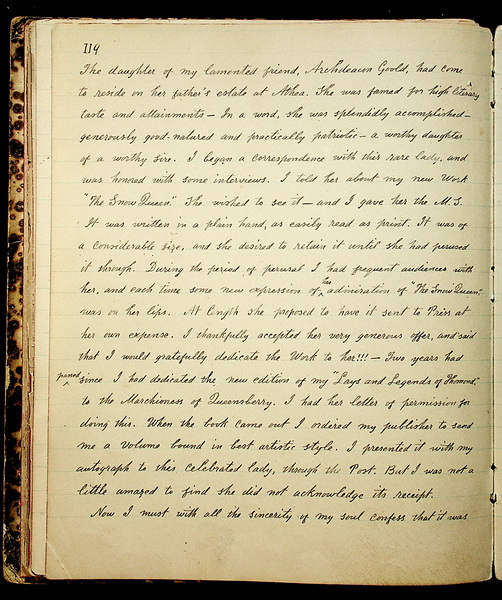 114
The daughter of my lamented friend, Archdeacon Goold, had come
to reside on her father's estate at Athea. She was famed for high literary
taste and attainments — In a word, she was splendidly accomplished —
generously good-natured and practically patriotic — a worthy daughter
of a worthy sire. I began a correspondence with this rare lady, and
was honored with some interviews. I told her about my new Work
"The Snow Queen." She wished to see it — and I gave her the M.S.
It was written in a plain hand, as easily read as print. It was of
a considerable size, and she desired to retain it until she had perused
it through. During the period of perusal I had frequent audiences with
her, and each time some new expression of the admiration of "The Snow Queen"
was on her lips. At length she proposed to have it sent to Press at
her own expense. I thankfully accepted her very generous offer, and said
that I would gratefully dedicate the Work to her!!! — Two years had
passed since I had dedicated the new edition of my "Lays and Legends of Thomond,"
to the Marchioness of Queensberry. I had her letter of permission for
doing this. When the book came out I ordered my publisher to send
me a volume bound in best artistic style. I presented it with my
autograph to this celebrated lady, through the Post. But I was not a
little amazed to find she did not acknowledge its receipt.
Now I must with all the sincerity of my soul confess that it was